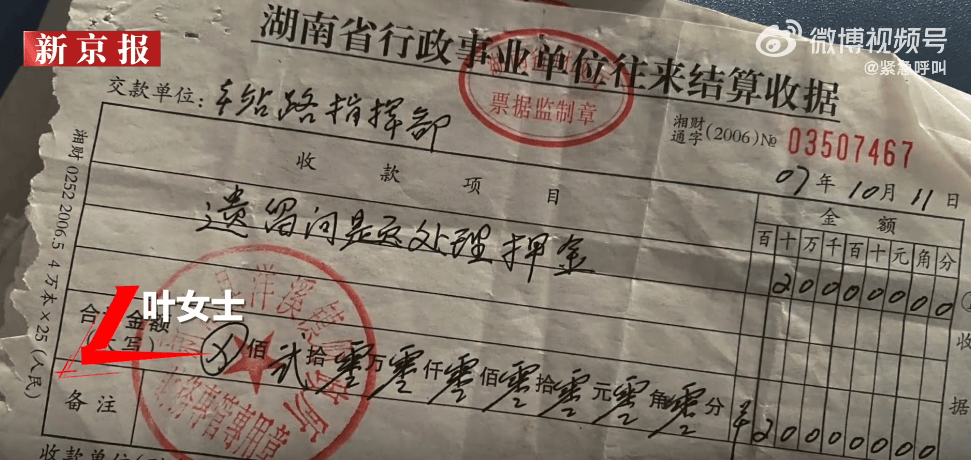 新京报
微博视频号
@紧急呼叫
湖南省行政事业单位往来结算收据
票据监制章
交款单位：车站路指挥部
湘财通字(2006)№ 03507467
07年10月11日
湘财 0252 2006.5 4万本×25(人民)
收款项目
金额
百十万千百十元角分
遗留问题处理押金
200000000
叶女士
合 金额
(大写) ⊗佰贰拾零万零仟零佰零拾零元零角零分 ¥20000000
备注
收款单位
洋溪镇财政
专用章
收
据